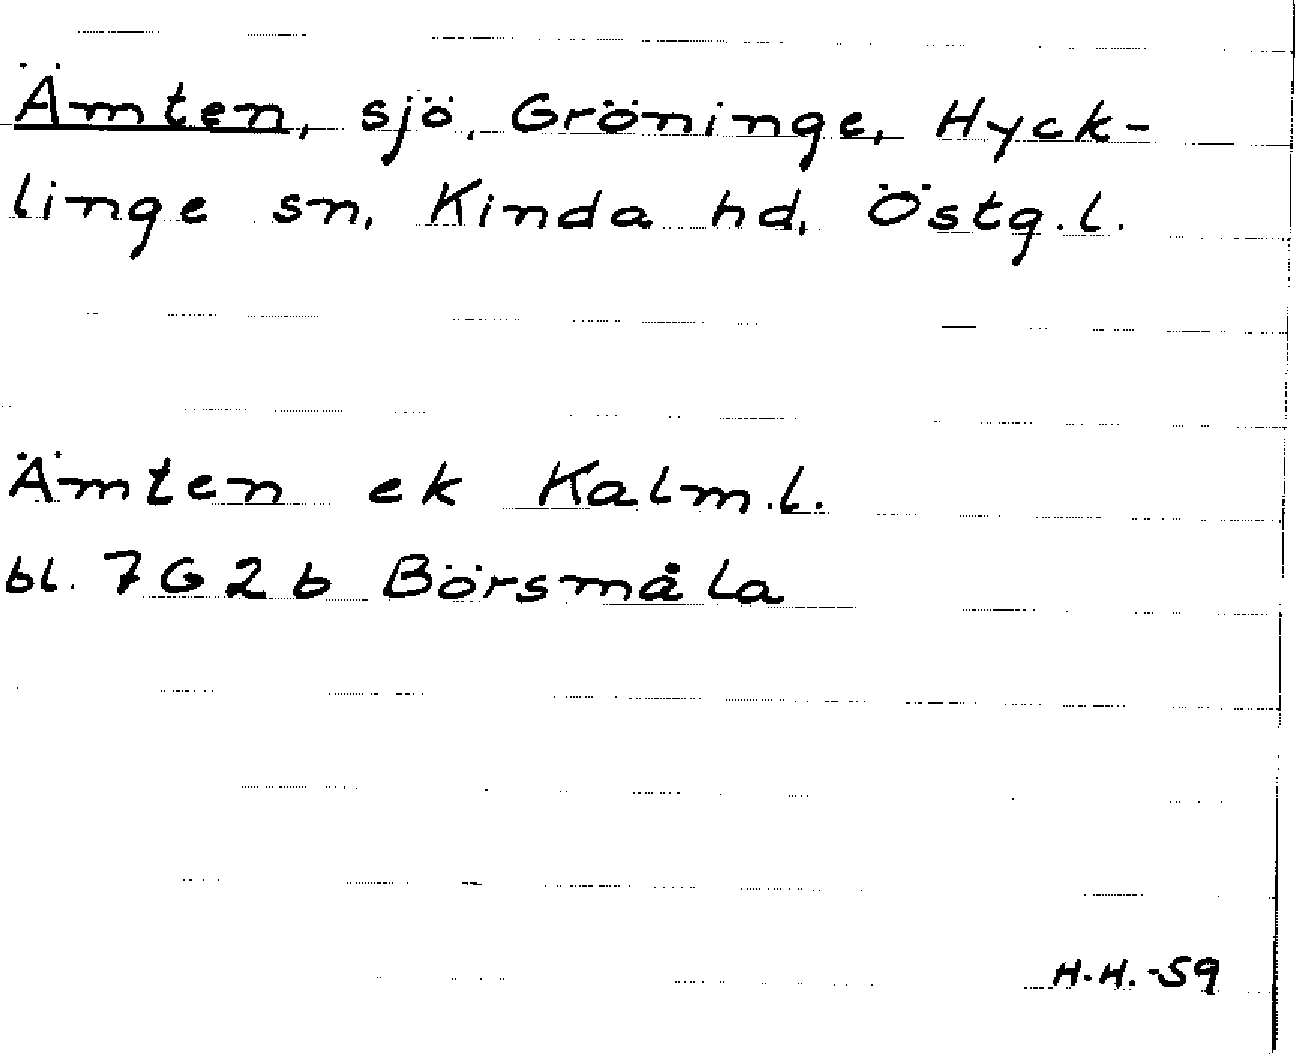 Ämten, sjö, Gröninge, Hyck-
linge sn, Kinda hd, Östg.l.
Ämten ek Kalm.l.
bl. 7G2b Börsmåla
H.H.-59